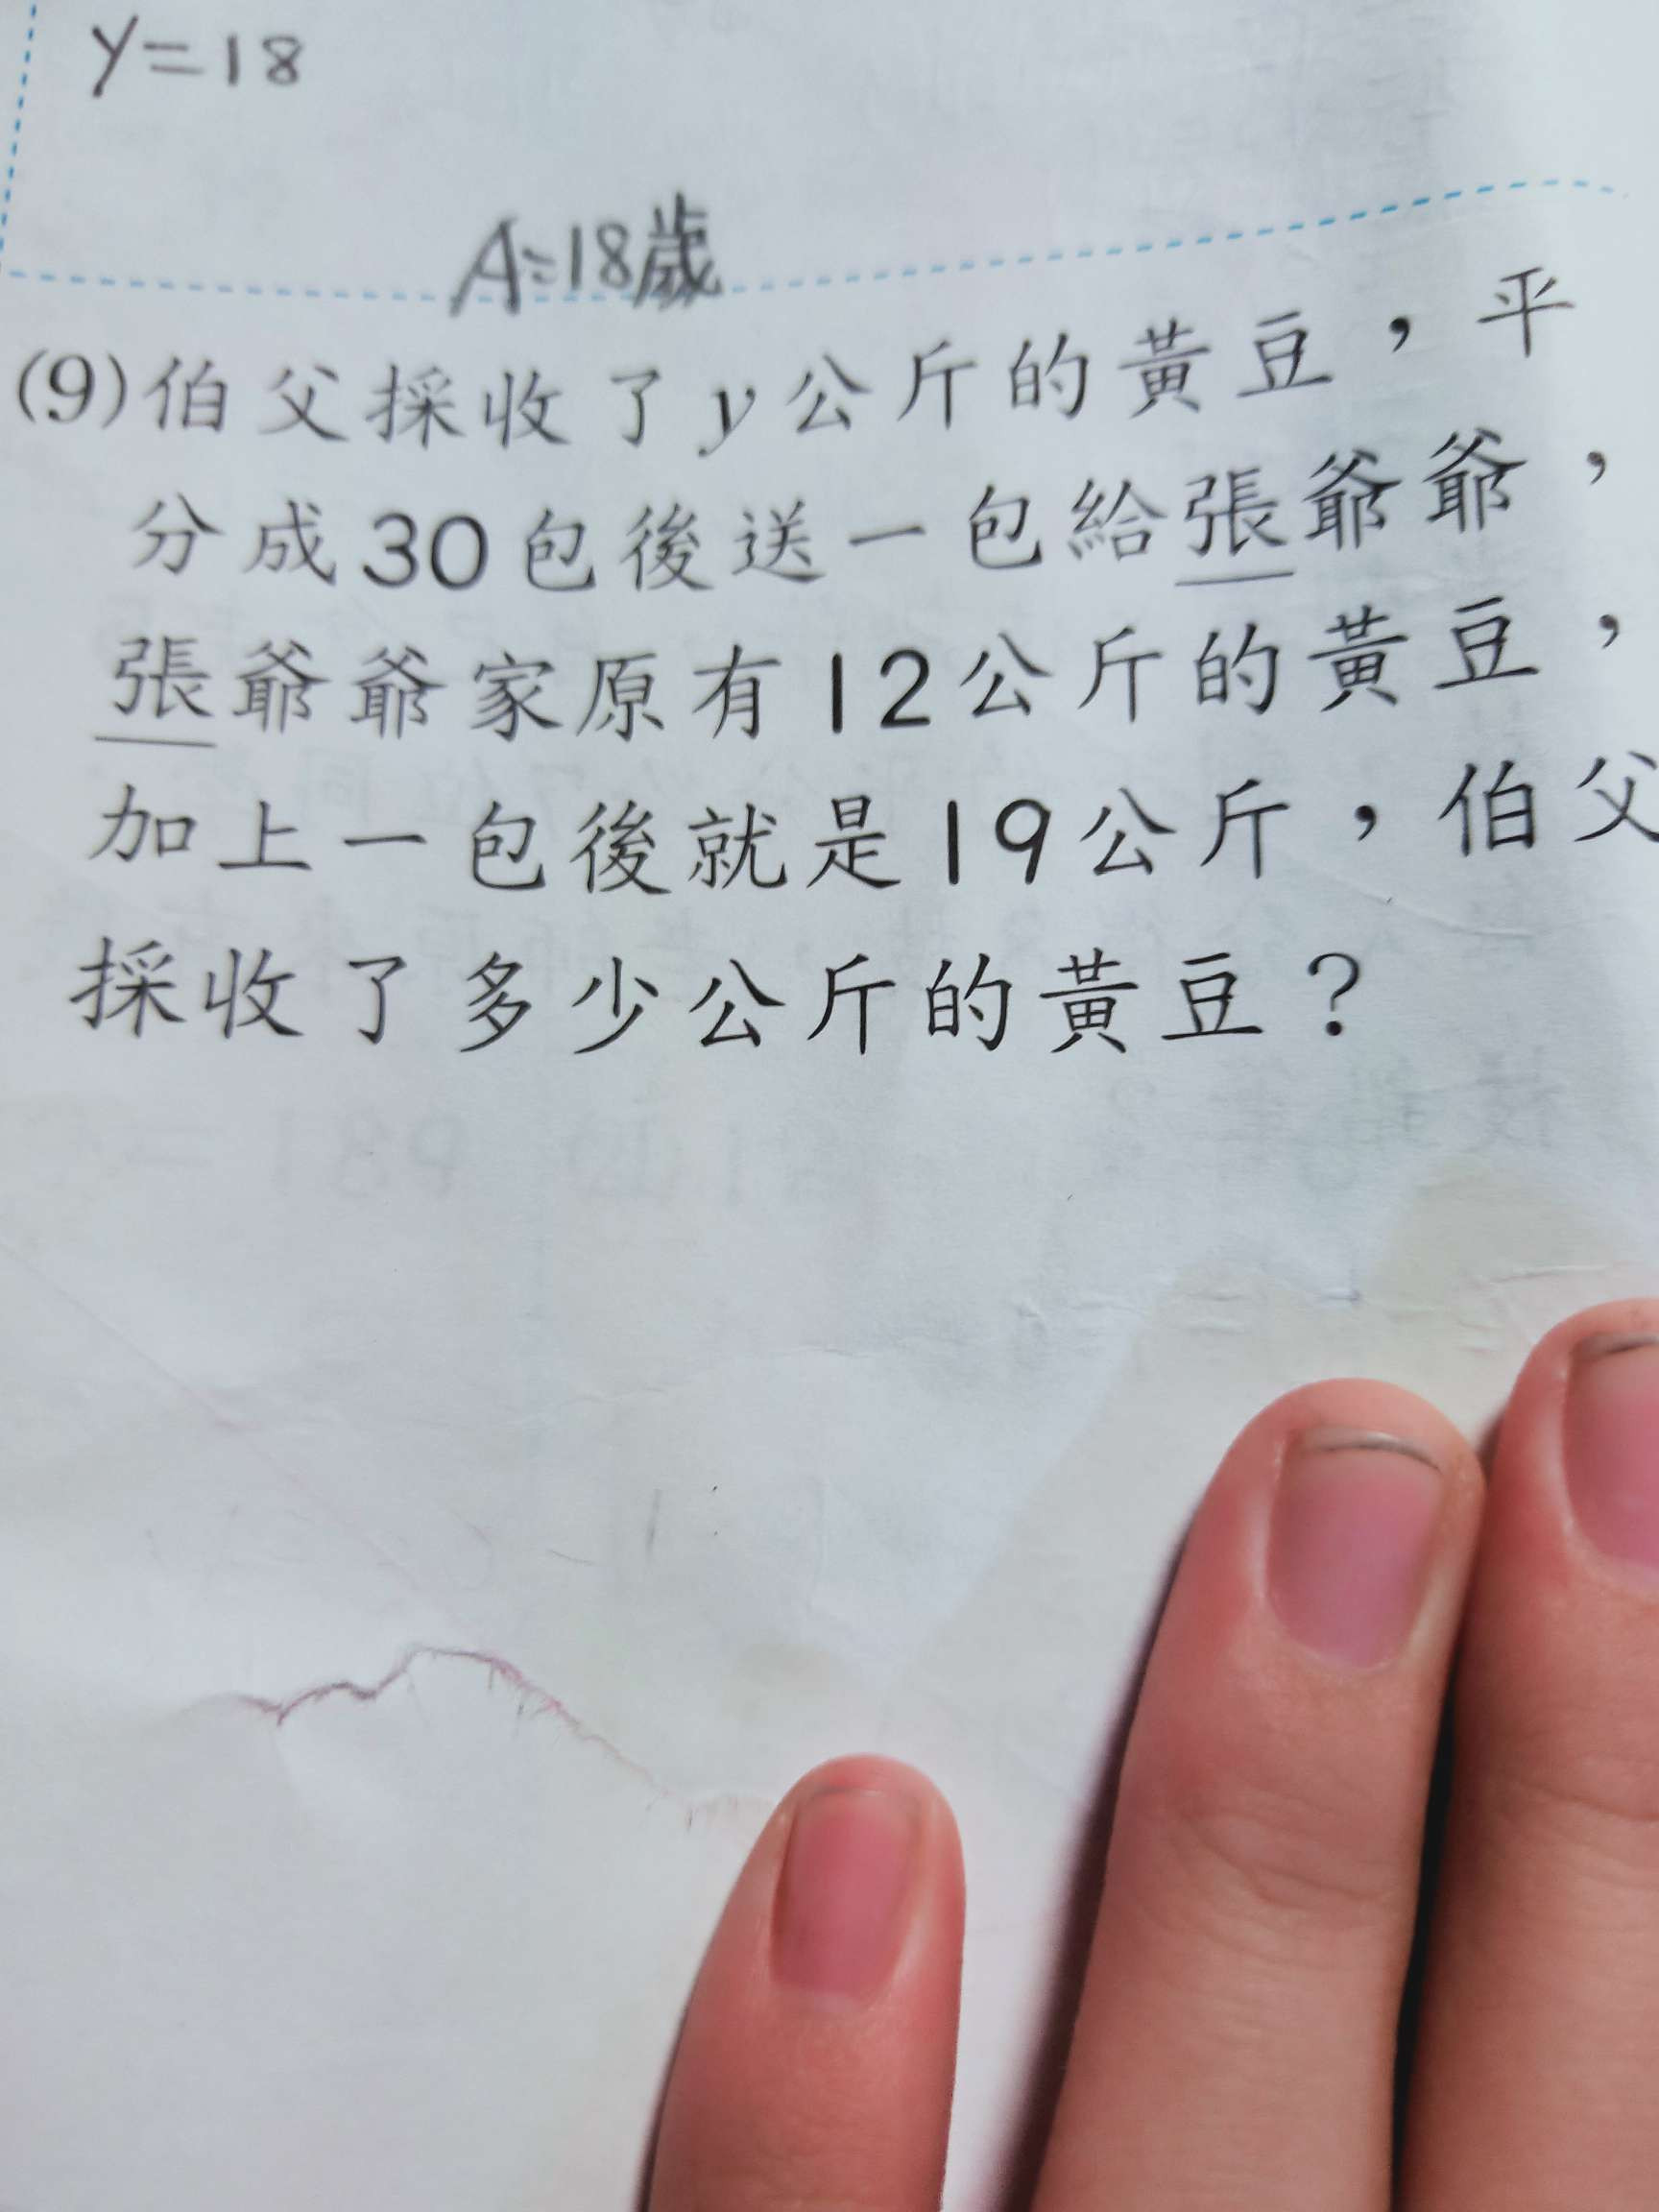 y=18
A=18歲
(9)伯父採收了y公斤的黃豆，平
分成30包後送一包給張爺爺，
張爺爺家原有12公斤的黃豆，
加上一包後就是19公斤，伯父
採收了多少公斤的黃豆？